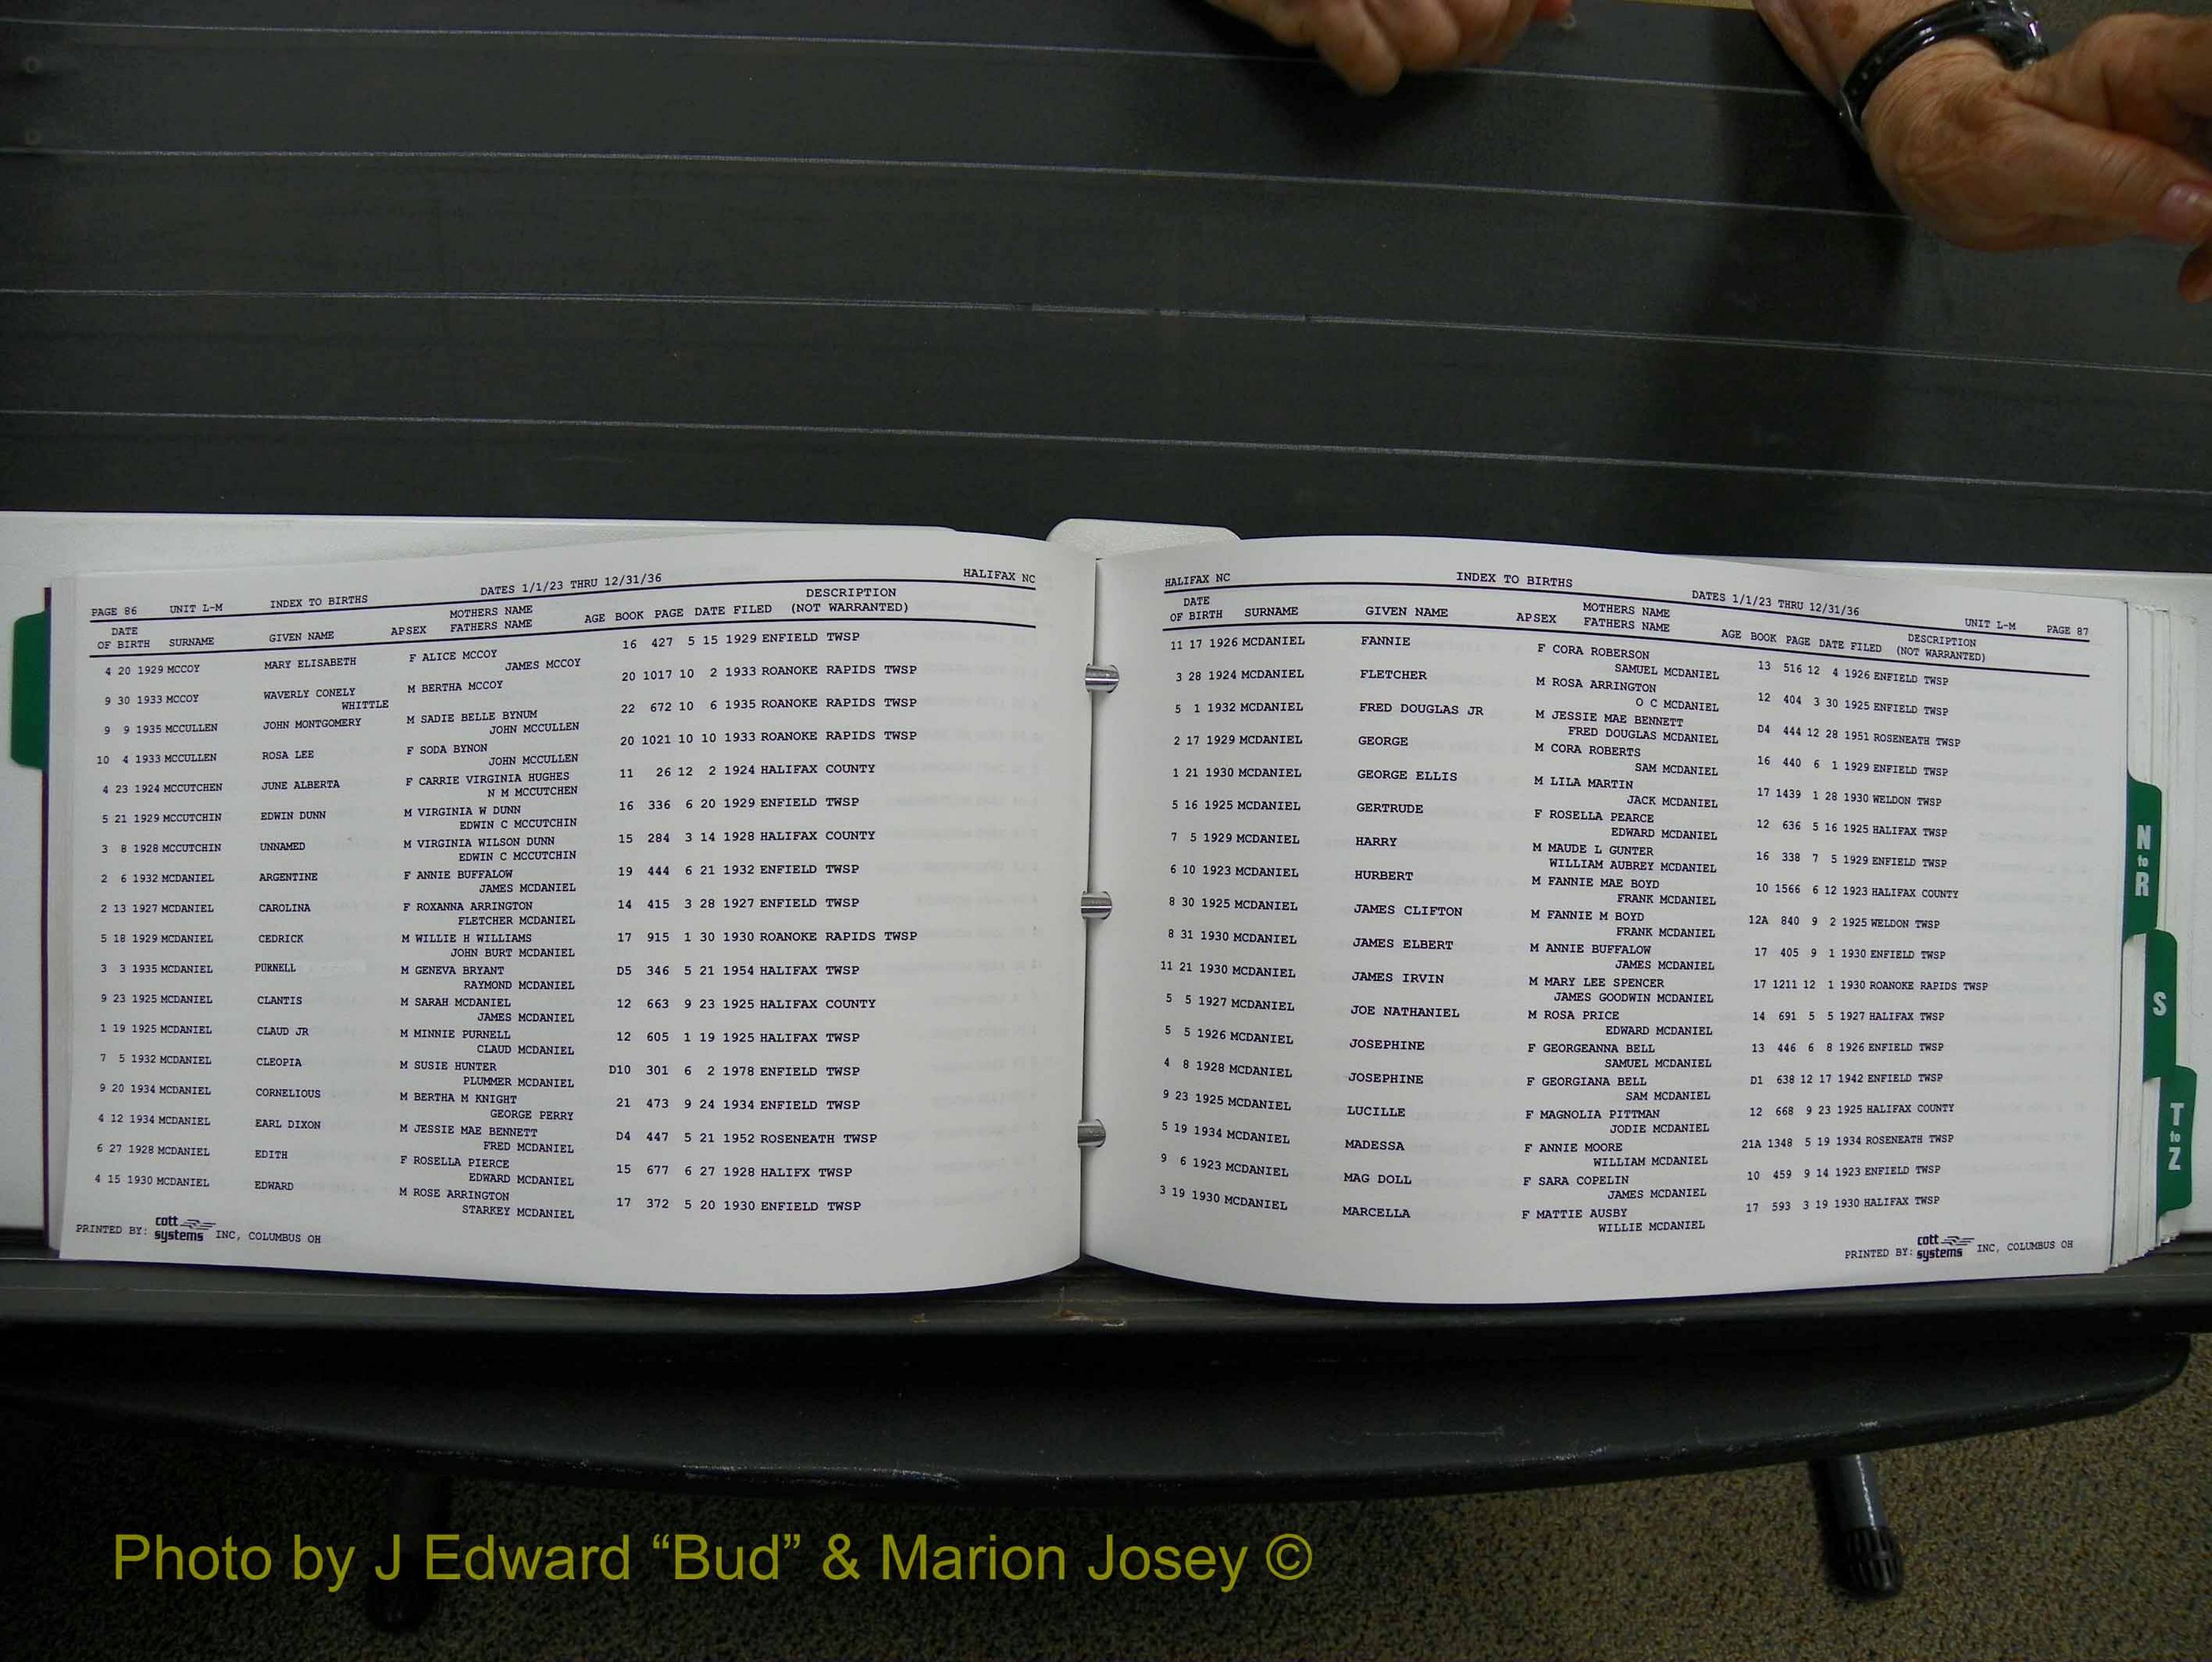 PAGE 86 UNIT L-M INDEX TO BIRTHS DATES 1/1/23 THRU 12/31/36 HALIFAX NC
DATE OF BIRTH SURNAME GIVEN NAME APSEX MOTHERS NAME FATHERS NAME AGE BOOK PAGE DATE FILED DESCRIPTION (NOT WARRANTED)
4 20 1929 MCCOY MARY ELISABETH F ALICE MCCOY 16 427 5 15 1929 ENFIELD TWSP
JAMES MCCOY
9 30 1933 MCCOY WAVERLY CONELY M BERTHA MCCOY 20 1017 10 2 1933 ROANOKE RAPIDS TWSP
WHITTLE
9 9 1935 MCCULLEN JOHN MONTGOMERY M SADIE BELLE BYNUM 22 672 10 6 1935 ROANOKE RAPIDS TWSP
JOHN MCCULLEN
10 4 1933 MCCULLEN ROSA LEE F SODA BYNON 20 1021 10 10 1933 ROANOKE RAPIDS TWSP
JOHN MCCULLEN
4 23 1924 MCCUTCHEN JUNE ALBERTA F CARRIE VIRGINIA HUGHES 11 26 12 2 1924 HALIFAX COUNTY
N M MCCUTCHEN
5 21 1929 MCCUTCHIN EDWIN DUNN M VIRGINIA W DUNN 16 336 6 20 1929 ENFIELD TWSP
EDWIN C MCCUTCHIN
3 8 1928 MCCUTCHIN UNNAMED M VIRGINIA WILSON DUNN 15 284 3 14 1928 HALIFAX COUNTY
EDWIN C MCCUTCHIN
2 6 1932 MCDANIEL ARGENTINE F ANNIE BUFFALOW 19 444 6 21 1932 ENFIELD TWSP
JAMES MCDANIEL
2 13 1927 MCDANIEL CAROLINA F ROXANNA ARRINGTON 14 415 3 28 1927 ENFIELD TWSP
FLETCHER MCDANIEL
5 18 1929 MCDANIEL CEDRICK M WILLIE H WILLIAMS 17 915 1 30 1930 ROANOKE RAPIDS TWSP
JOHN BURT MCDANIEL
3 3 1935 MCDANIEL PURNELL M GENEVA BRYANT D5 346 5 21 1954 HALIFAX TWSP
RAYMOND MCDANIEL
9 23 1925 MCDANIEL CLANTIS M SARAH MCDANIEL 12 663 9 23 1925 HALIFAX COUNTY
JAMES MCDANIEL
1 19 1925 MCDANIEL CLAUD JR M MINNIE PURNELL 12 605 1 19 1925 HALIFAX TWSP
CLAUD MCDANIEL
7 5 1932 MCDANIEL CLEOPIA M SUSIE HUNTER D10 301 6 2 1978 ENFIELD TWSP
PLUMMER MCDANIEL
9 20 1934 MCDANIEL CORNELIOUS M BERTHA M KNIGHT 21 473 9 24 1934 ENFIELD TWSP
GEORGE PERRY
4 12 1934 MCDANIEL EARL DIXON M JESSIE MAE BENNETT D4 447 5 21 1952 ROSENEATH TWSP
FRED MCDANIEL
6 27 1928 MCDANIEL EDITH F ROSELLA PIERCE 15 677 6 27 1928 HALIFX TWSP
EDWARD MCDANIEL
4 15 1930 MCDANIEL EDWARD M ROSE ARRINGTON 17 372 5 20 1930 ENFIELD TWSP
STARKEY MCDANIEL
PRINTED BY: cott systems INC, COLUMBUS OH
HALIFAX NC INDEX TO BIRTHS DATES 1/1/23 THRU 12/31/36 UNIT L-M PAGE 87
DATE OF BIRTH SURNAME GIVEN NAME APSEX MOTHERS NAME FATHERS NAME AGE BOOK PAGE DATE FILED DESCRIPTION (NOT WARRANTED)
11 17 1926 MCDANIEL FANNIE F CORA ROBERSON 13 516 12 4 1926 ENFIELD TWSP
SAMUEL MCDANIEL
3 28 1924 MCDANIEL FLETCHER M ROSA ARRINGTON 12 404 3 30 1925 ENFIELD TWSP
O C MCDANIEL
5 1 1932 MCDANIEL FRED DOUGLAS JR M JESSIE MAE BENNETT D4 444 12 28 1951 ROSENEATH TWSP
FRED DOUGLAS MCDANIEL
2 17 1929 MCDANIEL GEORGE M CORA ROBERTS 16 440 6 1 1929 ENFIELD TWSP
SAM MCDANIEL
1 21 1930 MCDANIEL GEORGE ELLIS M LILA MARTIN 17 1439 1 28 1930 WELDON TWSP
JACK MCDANIEL
5 16 1925 MCDANIEL GERTRUDE F ROSELLA PEARCE 12 636 5 16 1925 HALIFAX TWSP
EDWARD MCDANIEL
7 5 1929 MCDANIEL HARRY M MAUDE L GUNTER 16 338 7 5 1929 ENFIELD TWSP
WILLIAM AUBREY MCDANIEL
6 10 1923 MCDANIEL HURBERT M FANNIE MAE BOYD 10 1566 6 12 1923 HALIFAX COUNTY
FRANK MCDANIEL
8 30 1925 MCDANIEL JAMES CLIFTON M FANNIE M BOYD 12A 840 9 2 1925 WELDON TWSP
FRANK MCDANIEL
8 31 1930 MCDANIEL JAMES ELBERT M ANNIE BUFFALOW 17 405 9 1 1930 ENFIELD TWSP
JAMES MCDANIEL
11 21 1930 MCDANIEL JAMES IRVIN M MARY LEE SPENCER 17 1211 12 1 1930 ROANOKE RAPIDS TWSP
JAMES GOODWIN MCDANIEL
5 5 1927 MCDANIEL JOE NATHANIEL M ROSA PRICE 14 691 5 5 1927 HALIFAX TWSP
EDWARD MCDANIEL
5 5 1926 MCDANIEL JOSEPHINE F GEORGEANNA BELL 13 446 6 8 1926 ENFIELD TWSP
SAMUEL MCDANIEL
4 8 1928 MCDANIEL JOSEPHINE F GEORGIANA BELL D1 638 12 17 1942 ENFIELD TWSP
SAM MCDANIEL
9 23 1925 MCDANIEL LUCILLE F MAGNOLIA PITTMAN 12 668 9 23 1925 HALIFAX COUNTY
JODIE MCDANIEL
5 19 1934 MCDANIEL MADESSA F ANNIE MOORE 21A 1348 5 19 1934 ROSENEATH TWSP
WILLIAM MCDANIEL
9 6 1923 MCDANIEL MAG DOLL F SARA COPELIN 10 459 9 14 1923 ENFIELD TWSP
JAMES MCDANIEL
3 19 1930 MCDANIEL MARCELLA F MATTIE AUSBY 17 593 3 19 1930 HALIFAX TWSP
WILLIE MCDANIEL
PRINTED BY: cott systems INC, COLUMBUS OH
N to R
S
T to Z
Photo by J Edward “Bud” & Marion Josey ©